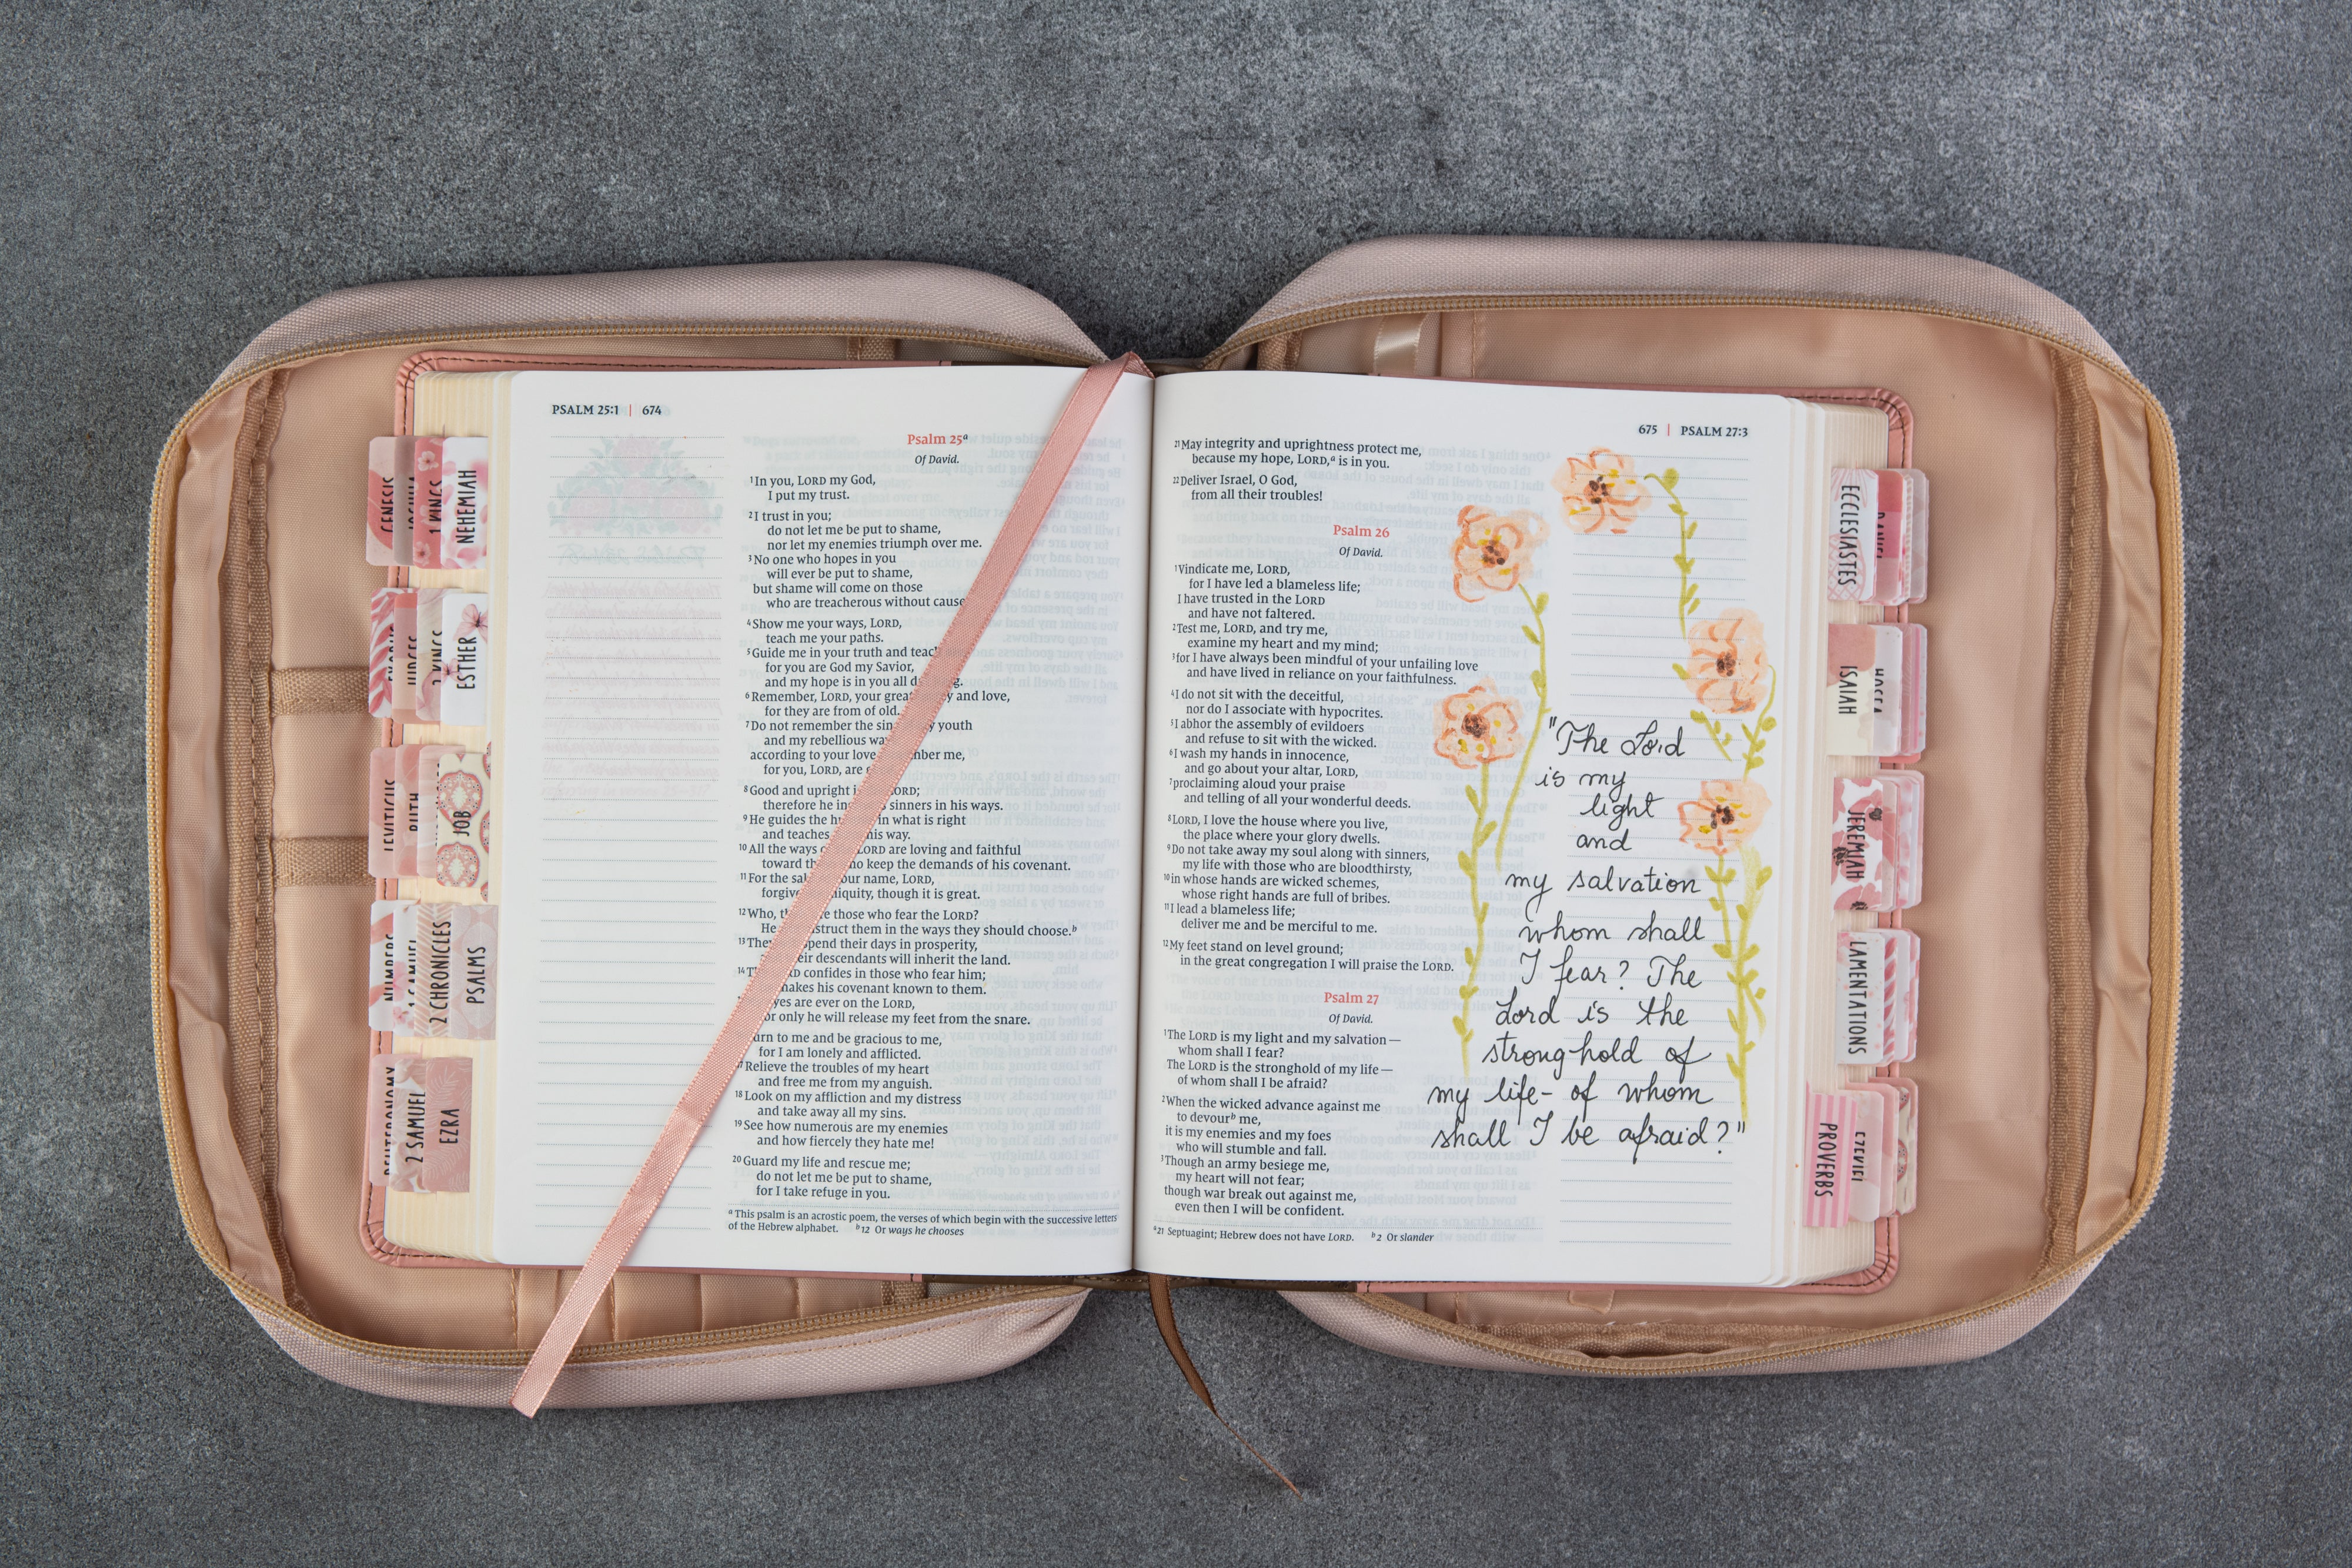 PSALM 25:1 | 674
Psalm 25a
Of David.
1In you, LORD my God,
I put my trust.
2I trust in you;
do not let me be put to shame,
nor let my enemies triumph over me.
3No one who hopes in you
will ever be put to shame,
but shame will come on those
who are treacherous without cause
4Show me your ways, LORD,
teach me your paths.
5Guide me in your truth and teac
for you are God my Savior,
and my hope is in you all d g.
6Remember, LORD, your grea y and love,
for they are from of old.
7Do not remember the sin y youth
and my rebellious wa
according to your love mber me,
for you, LORD, are
8Good and upright i ORD;
therefore he in sinners in his ways.
9He guides the hu in what is right
and teaches his way.
10All the ways LORD are loving and faithful
toward th o keep the demands of his covenant.
11For the sak your name, LORD,
forgive iquity, though it is great.
12Who, t e those who fear the LORD?
He nstruct them in the ways they should choose.b
13They pend their days in prosperity,
eir descendants will inherit the land.
14T D confides in those who fear him;
makes his covenant known to them.
yes are ever on the LORD,
or only he will release my feet from the snare.
urn to me and be gracious to me,
for I am lonely and afflicted.
17Relieve the troubles of my heart
and free me from my anguish.
18Look on my affliction and my distress
and take away all my sins.
19See how numerous are my enemies
and how fiercely they hate me!
20Guard my life and rescue me;
do not let me be put to shame,
for I take refuge in you.
a This psalm is an acrostic poem, the verses of which begin with the successive letters
of the Hebrew alphabet. b 12 Or ways he chooses
675 | PSALM 27:3
21May integrity and uprightness protect me,
because my hope, LORD,a is in you.
22Deliver Israel, O God,
from all their troubles!
Psalm 26
Of David.
1Vindicate me, LORD,
for I have led a blameless life;
I have trusted in the LORD
and have not faltered.
2Test me, LORD, and try me,
examine my heart and my mind;
3for I have always been mindful of your unfailing love
and have lived in reliance on your faithfulness.
4I do not sit with the deceitful,
nor do I associate with hypocrites.
5I abhor the assembly of evildoers
and refuse to sit with the wicked.
6I wash my hands in innocence,
and go about your altar, LORD,
7proclaiming aloud your praise
and telling of all your wonderful deeds.
8LORD, I love the house where you live,
the place where your glory dwells.
9Do not take away my soul along with sinners,
my life with those who are bloodthirsty,
10in whose hands are wicked schemes,
whose right hands are full of bribes.
11I lead a blameless life;
deliver me and be merciful to me.
12My feet stand on level ground;
in the great congregation I will praise the LORD.
Psalm 27
Of David.
1The LORD is my light and my salvation—
whom shall I fear?
The LORD is the stronghold of my life—
of whom shall I be afraid?
2When the wicked advance against me
to devourb me,
it is my enemies and my foes
who will stumble and fall.
3Though an army besiege me,
my heart will not fear;
though war break out against me,
even then I will be confident.
a 21 Septuagint; Hebrew does not have LORD. b 2 Or slander
"The Lord
is my
light
and
my salvation
whom shall
I fear? The
Lord is the
stronghold of
my life- of whom
shall I be afraid?"
GENESIS
1 KINGS
NEHEMIAH
ESTHER
LEVITICUS
RUTH
JOB
NUMBERS
1 SAMUEL
2 CHRONICLES
PSALMS
2 SAMUEL
EZRA
ECCLESIASTES
DANIEL
ISAIAH
HOSEA
JEREMIAH
LAMENTATIONS
PROVERBS
EZEKIEL